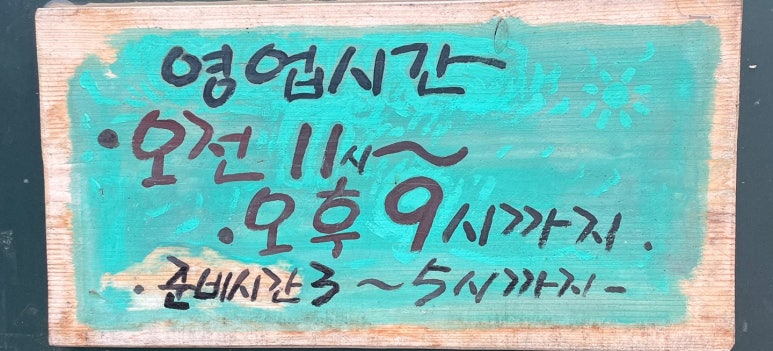 영업시간
·오전 11시~
·오후 9시까지.
·준비시간 3~5시까지-